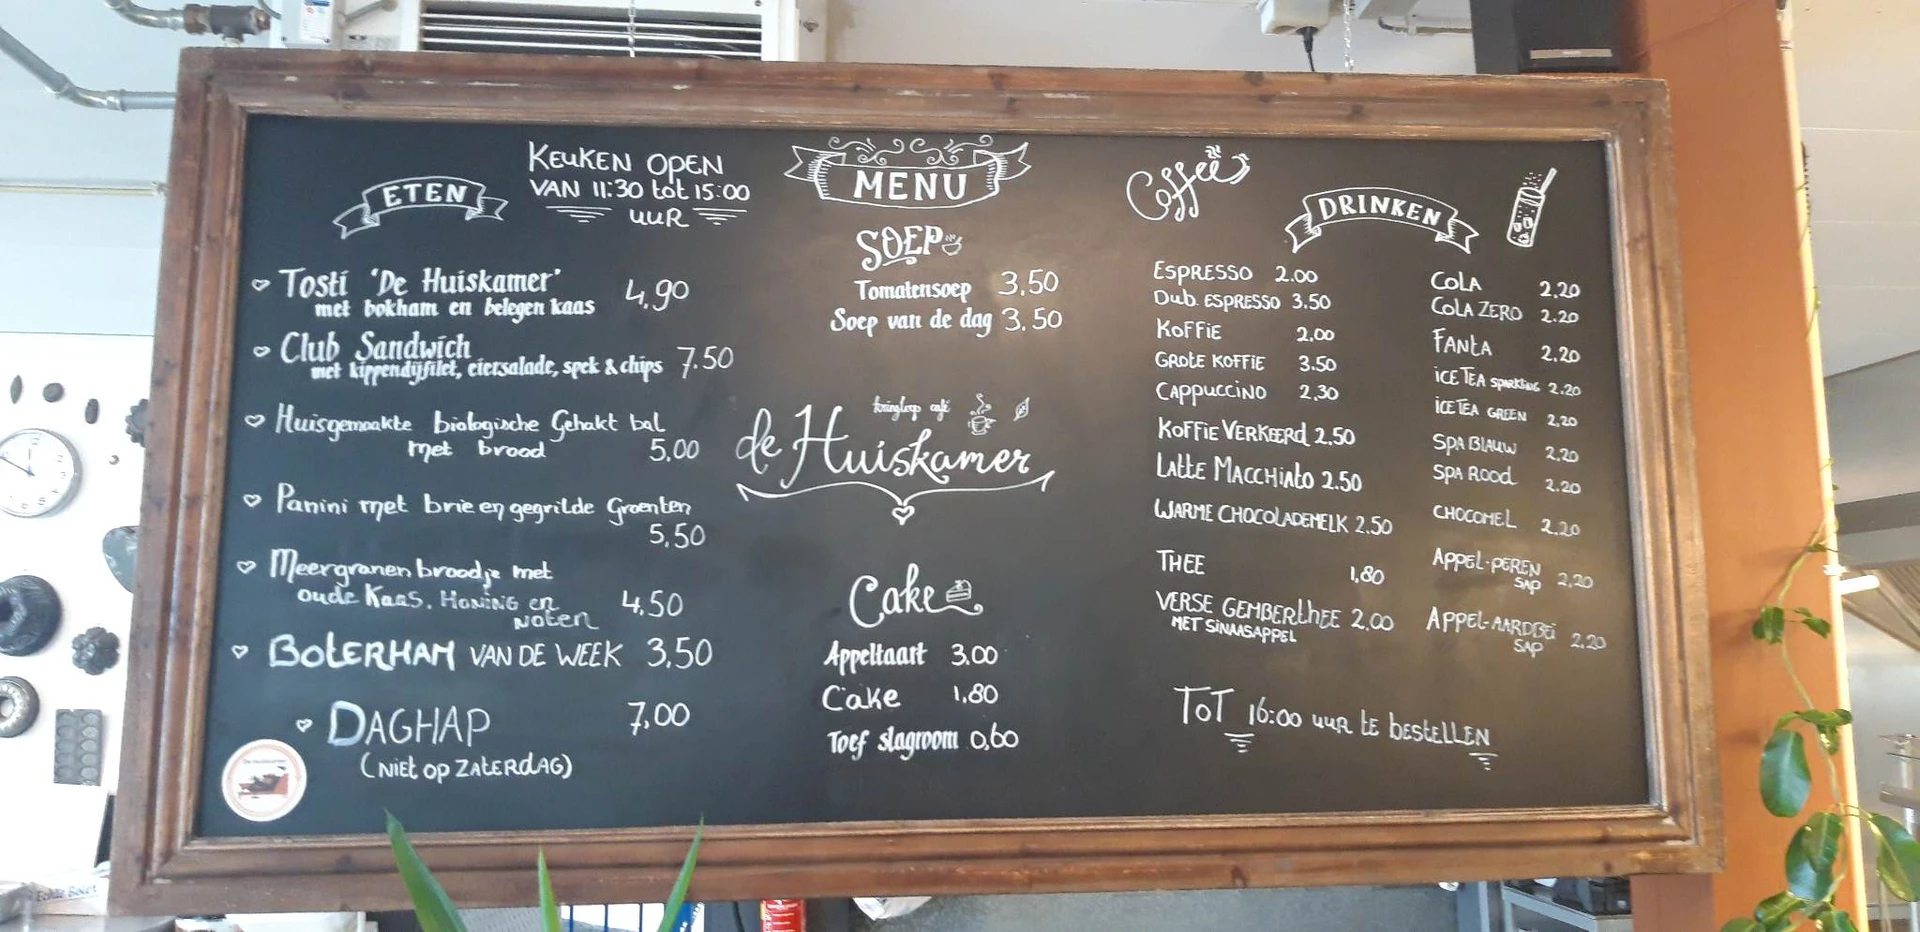 ETEN
KEUKEN OPEN
VAN 11:30 tot 15:00
uuR
Tosti 'De Huiskamer' 4,90
met bokham en belegen kaas
Club Sandwich 7.50
met kippendijfilet, eiersalade, spek & chips
Huisgemaakte biologische Gehakt bal
met brood 5,00
Panini met brie en gegrilde Groenten
5,50
Meergranen broodje met
oude Kaas, Honing en 4,50
Noten
BOTERHAM VAN DE WEEK 3,50
DAGHAP 7,00
(NIET OP ZATERDAG)
MENU
SOEP
Tomatensoep 3,50
Soep van de dag 3,50
kringloop café
de Huiskamer
Cake
Appeltaart 3.00
Cake 1,80
Toef slagroom 0,60
Coffee
DRINKEN
ESPRESSO 2.00
Dub. ESPRESSO 3,50
KOFFIE 2,00
GROTE KOFFIE 3.50
CAPPUCCINO 2,30
KOFFIE VERKEERd 2.50
LAttE MACCHIAtO 2.50
WARME CHOCOLADEMELK 2.50
THEE 1,80
VERSE GEMBERthEE 2,00
MET SINAASAPPEL
COLA 2,20
COLA ZERO 2.20
FANtA 2,20
ICE TEA SPARKLING 2.20
ICE TEA GREEN 2,20
SPA BLAUW 2,20
SPA ROOd 2.20
CHOCOMEL 2,20
APPEL-PEREN
SAP 2,20
APPEL-AARDBEI
SAP 2,20
TOT 16:00 uuR tE bEStELLEN